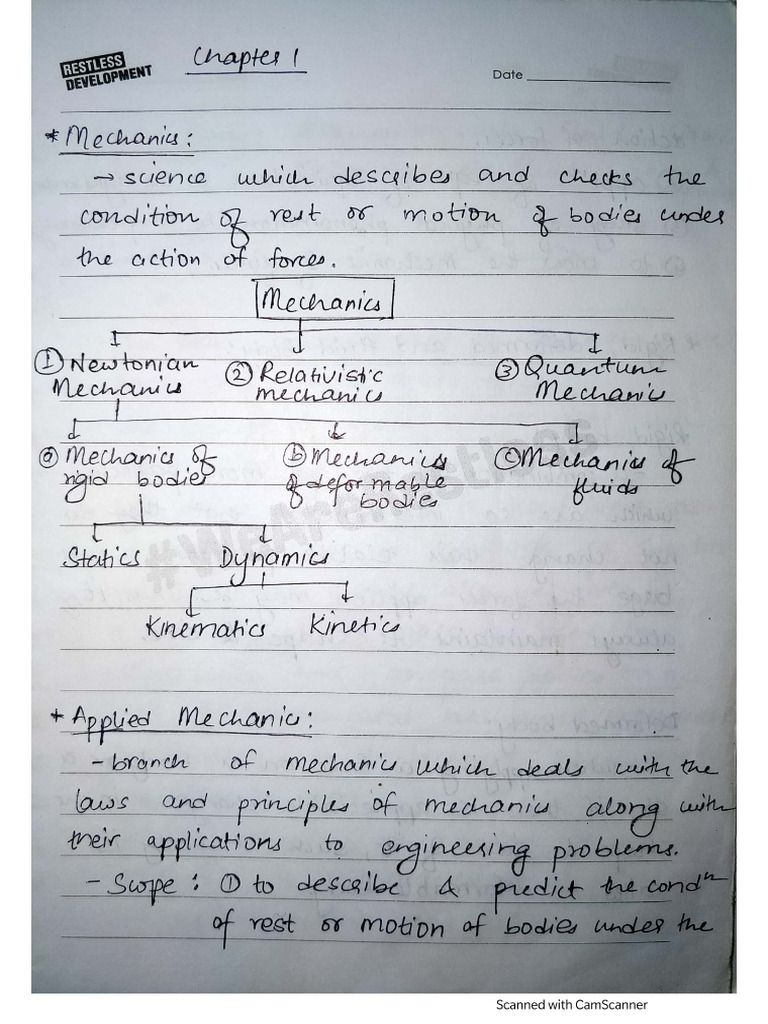 RESTLESS
DEVELOPMENT
Chapter 1
Date
* Mechanics:
→ science which describes and checks the
condition of rest or motion of bodies under
the action of forces.
Mechanics
① Newtonian ② Relativistic ③ Quantum
Mechanics mechanics Mechanic
ⓐ Mechanics of ⓑ Mechanics ⓒ Mechanics of
rigid bodies of deformable fluids
bodies
Statics Dynamics
Kinematics Kinetics
* Applied Mechanic:
- branch of mechanic which deals with the
laws and principles of mechanic along with
their applications to engineering problems.
- Scope: ① to describe & predict the condⁿ
of rest or motion of bodies under the
Scanned with CamScanner